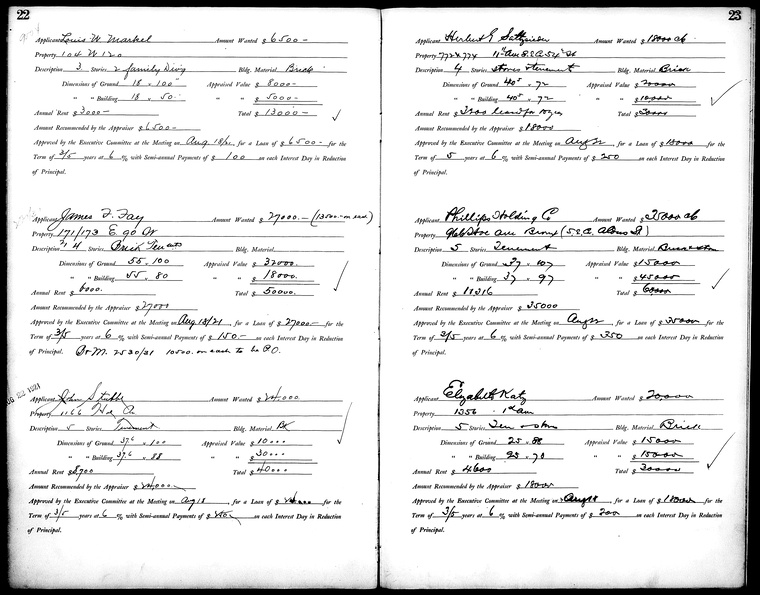 22
Applicant Louis W. Markel Amount Wanted $ 6500 —
Property 104 W 120
Description 3 Stories 2 family Dwg Bldg. Material Brick
Dimensions of Ground 18 x 100 Appraised Value $ 8000 —
" " Building 18 x 50 " " $ 5000 —
Annual Rent $ 3000 — Total $ 13000 —
Amount Recommended by the Appraiser $ 6500 —
Approved by the Executive Committee at the Meeting on Aug 18/21, for a Loan of $ 6500 — for the
Term of 3/5 years at 6 % with Semi-annual Payments of $ 100 on each Interest Day in Reduction
of Principal.
Applicant James F. Fay Amount Wanted $ 27000. — (13500. — on each)
Property 171/173 E. 90
Description 4 Stories Brick Bldg. Material
Dimensions of Ground 55. 100 Appraised Value $ 32000.
" " Building 55 x 80 " " $ 18000.
Annual Rent $ 6000. Total $ 50000.
Amount Recommended by the Appraiser $ 27000
Approved by the Executive Committee at the Meeting on Aug 18/21, for a Loan of $ 27000. — for the
Term of 3/5 years at 6 % with Semi-annual Payments of $ 150. — on each Interest Day in Reduction
of Principal. 10500. on each to be P.O.
Applicant John Amount Wanted $
Property 1166
Description 5 Stories Tenement Bldg. Material Bk
Dimensions of Ground 37.6 x 100 Appraised Value $ 10000
" " Building 37.6 x 88 " " $ 30000
Annual Rent $ 8700 Total $ 40000
Amount Recommended by the Appraiser $
Approved by the Executive Committee at the Meeting on Aug 18, for a Loan of $ for the
Term of 3/5 years at 6 % with Semi-annual Payments of $ on each Interest Day in Reduction
of Principal.
23
Applicant Herbert E. Amount Wanted $ 18000
Property 772 & 774 11th Ave S.E. 54 St
Description 4 Stories stores tenement Bldg. Material Brick
Dimensions of Ground 40 x 72 Appraised Value $ 20000
" " Building 40 x 72 " " $ 10000
Annual Rent $ 3200 Total $ 30000
Amount Recommended by the Appraiser $ 18000
Approved by the Executive Committee at the Meeting on, for a Loan of $ 18000 for the
Term of 5 years at 6 % with Semi-annual Payments of $ 250 on each Interest Day in Reduction
of Principal.
Applicant Phillips Holding Co Amount Wanted $ 35000
Property Ave Bronx
Description 5 Stories Tenement Bldg. Material
Dimensions of Ground 37 x 107 Appraised Value $ 15000
" " Building 37 x 97 " " $ 45000
Annual Rent $ 10316 Total $ 60000
Amount Recommended by the Appraiser $ 35000
Approved by the Executive Committee at the Meeting on, for a Loan of $ 35000 for the
Term of 3/5 years at 6 % with Semi-annual Payments of $ 350 on each Interest Day in Reduction
of Principal.
Applicant Elizabeth Katz Amount Wanted $ 20000
Property 1356 - 1st Ave
Description 5 Stories Bldg. Material Brick
Dimensions of Ground 25 x 88 Appraised Value $ 15000
" " Building 25 x 70 " " $ 15000
Annual Rent $ 4600 Total $ 30000
Amount Recommended by the Appraiser $ 18000
Approved by the Executive Committee at the Meeting on, for a Loan of $ 18000 for the
Term of 3/5 years at 6 % with Semi-annual Payments of $ 200 on each Interest Day in Reduction
of Principal.